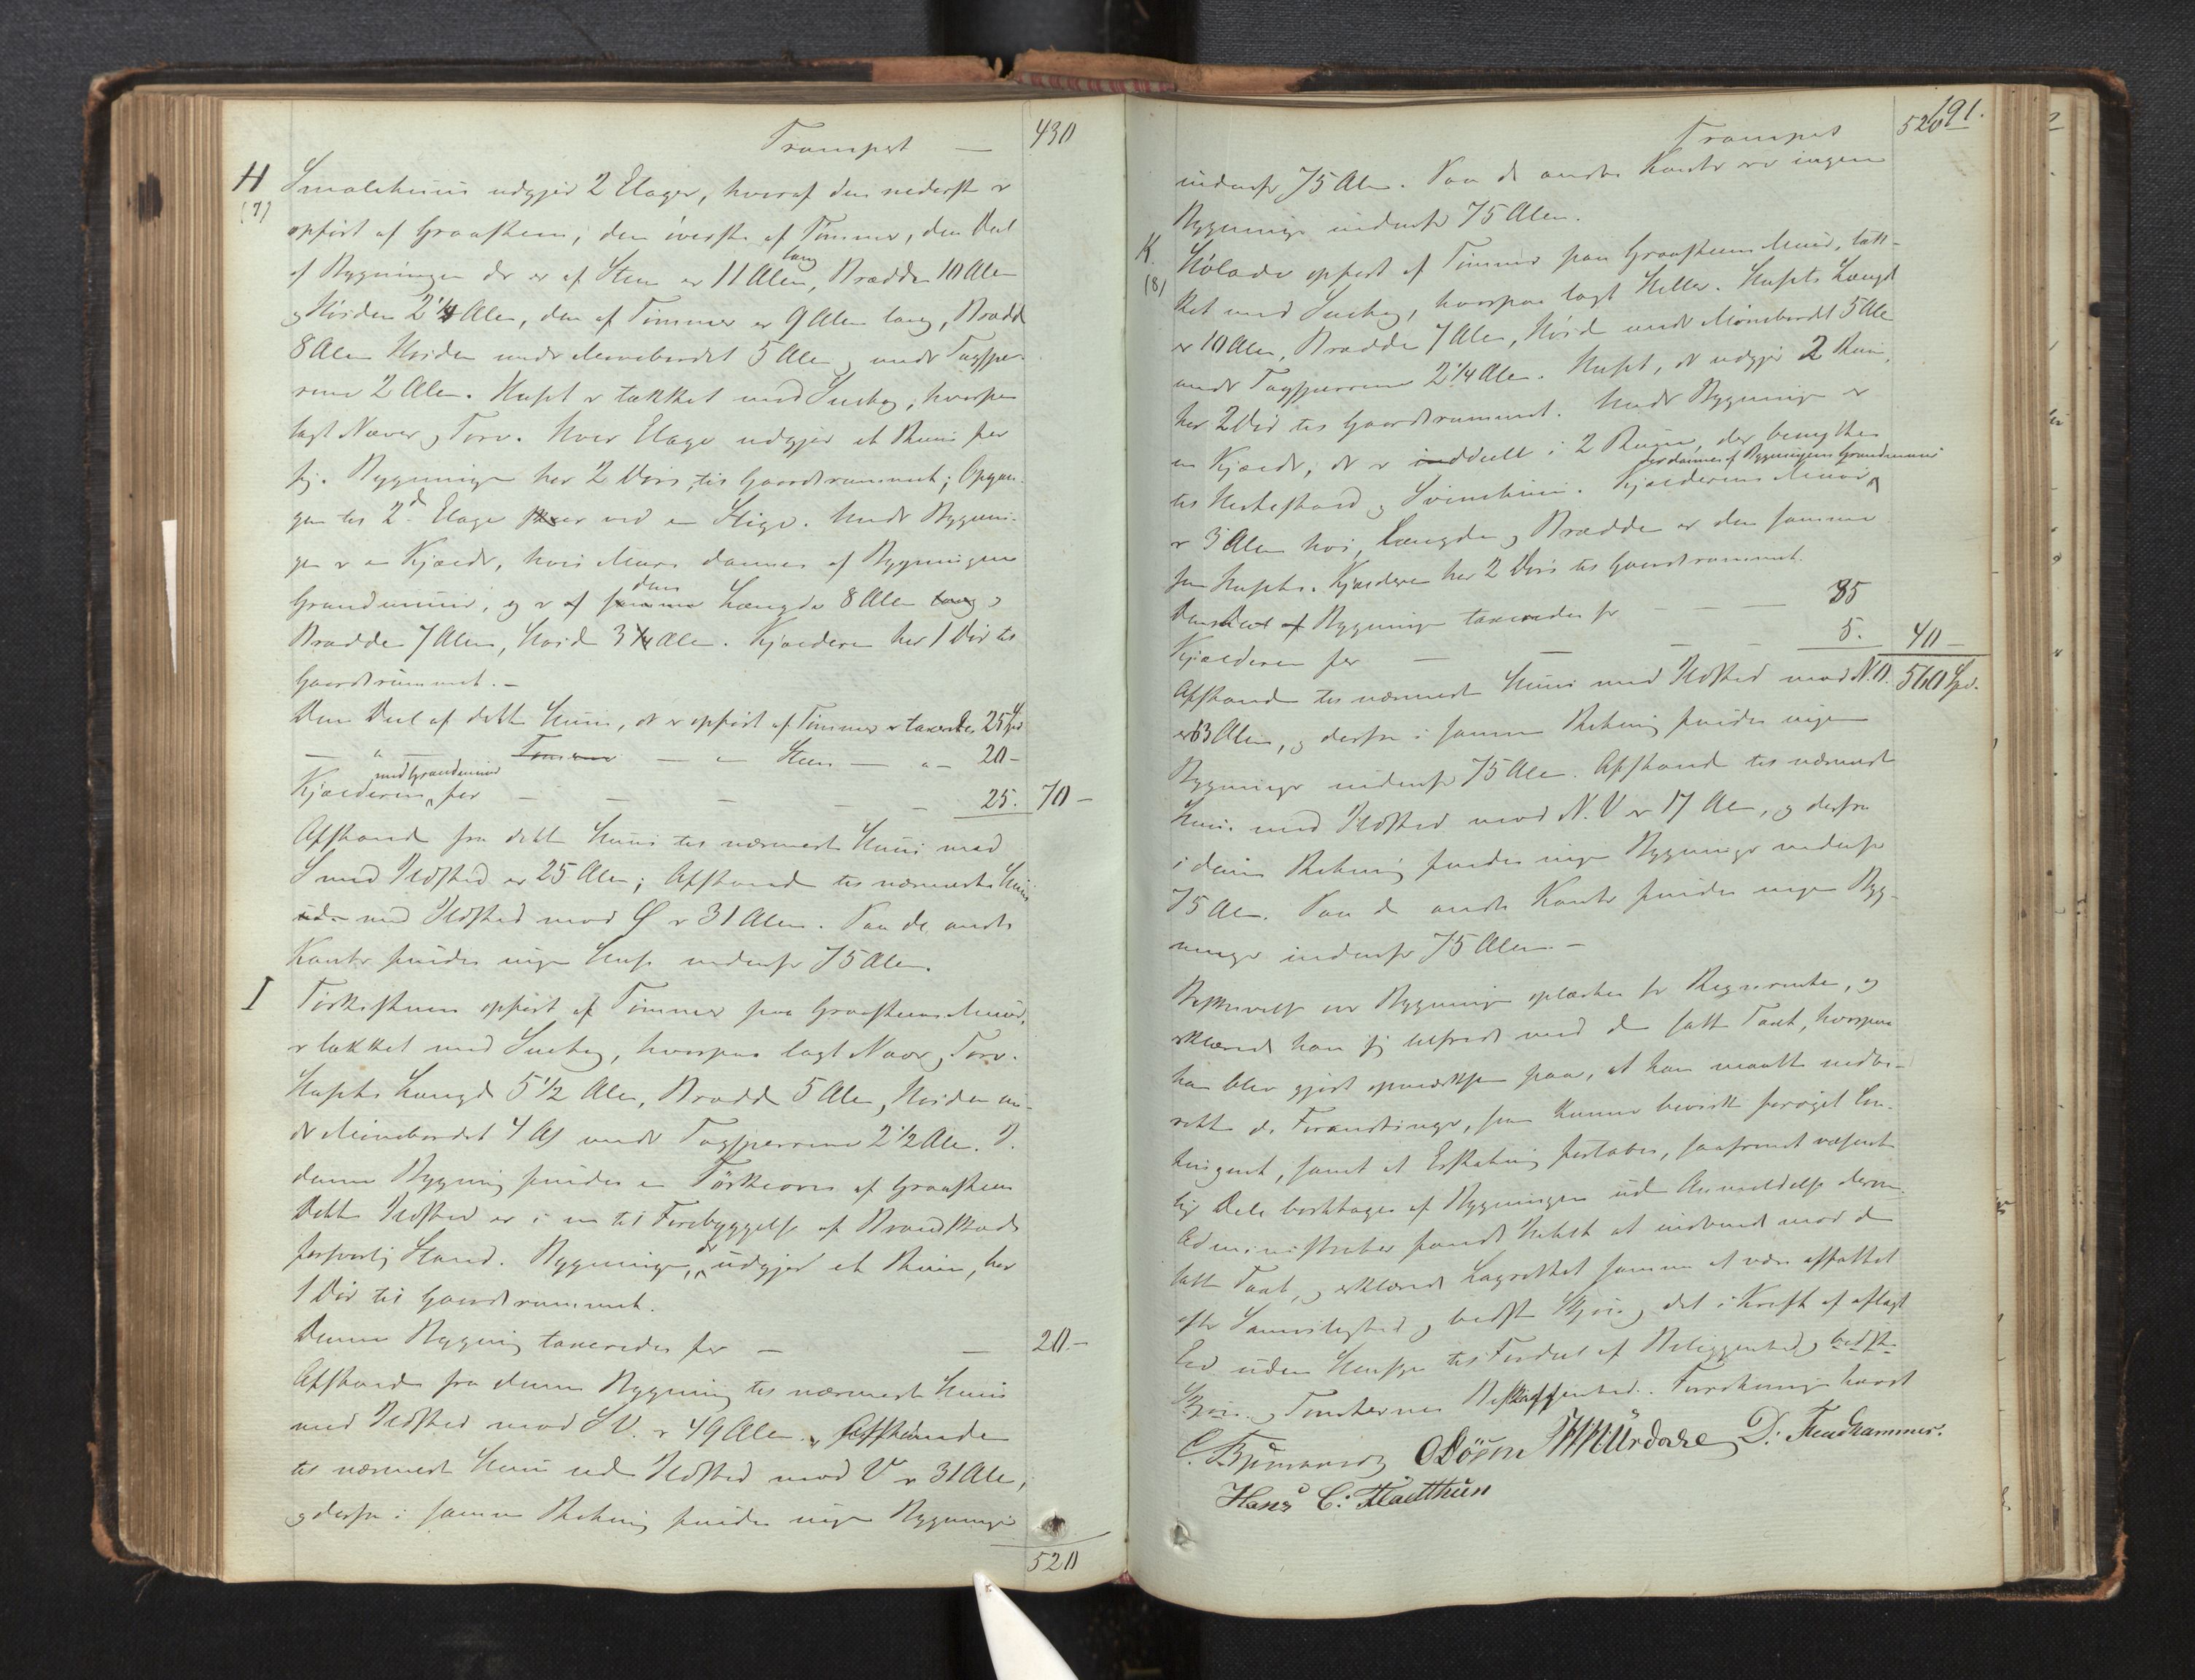 Transport — 430
H Smalehuus udgjør 2 Etager, hvoraf den nederste er
(7) opført af Graasteen, den øverste af Tømmer, den Deel
af Bygningen der er af Steen er 11 Alen lang, Bredde 10 Alen
og Høiden 2¼ Alen, den af Tømmer er 9 Alen lang, Bredde
8 Alen Høiden under Mønebordet 5 Alen og under Tagsper-
rene 2 Alen. Huset er tækket med Sutag, hvorpaa
lagt Næver og Torv. Hver Etage udgjør et Rum for
sig. Bygningen har 2 Døre til Gaardsrummet; Opgan-
gen til 2d Etage skeer ved en Stige. Under Bygnin-
gen er en Kjælder, hvis Mure dannes af Bygningens
Grundmuur, og er af samme dens Længde 8 Alen lang og
Bredde 7 Alen, Høide 3¼ Alen. Kjælderen har 1 Dør til
Gaardsrummet. —
Den Deel af dette Huus, der er opført af Tømmer er taxeret 25 Spd
— " — Tømmer — " — Steen — " — 20 —
Kjælderen med Grundmuur for — — — — — 25. 70 —
Afstand fra dette Huus til nærmeste Huus mod
S med Ildsted er 25 Alen; Afstand til nærmeste Huus
uden med Ildsted mod Ø er 31 Alen. Paa de andre
Kanter findes ingen Huse indenfor 75 Alen.
I Tørkestuen opført af Tømmer paa Graasteens Muur,
er tækket med Sutag, hvorpaa lagt Næver og Torv.
Husets Længde 5½ Alen, Bredde 5 Alen, Høiden un-
der Mønebordet 4 Al under Tagsperrene 2½ Alen. I
denne Bygning findes en Tørkeovn af Graasteen
Dette Ildsted er i en til Forebyggelse af Brandskade
forsvarlig Stand. Bygningen, der udgjør et Rum, har
1 Dør til Gaardsrummet.
Denne Bygning taxeredes for — — 20. —
Afstand fra denne Bygning til nærmeste Huus
med Ildsted mod SV. er 49 Alen. Afstande
til nærmeste Huus uden Ildsted mod V er 31 Alen,
og derfra i samme Retning findes ingen Bygninger
520
191.
Transport 520
indenfor 75 Alen. Paa de andre Kanter er ingen
Bygninger indenfor 75 Alen.
K. Høelade opført af Tømmer paa Graasteens Muur, tæk-
(8) ket med Sutag, hvorpaa lagt Heller. Husets Længde
er 10 Alen, Bredde 7 Alen, Høide under Mønebordet 5 Alen
under Tagsperrene 2¼ Alen. Huset, der udgjør 2 Rum,
har 2 Dør til Gaardsrummet. Under Bygningen er
en Kjælder, der er inddeelt i 2 Rum, der benyttes
til Hestestald og Sviinehuus. Kjælderens Muur der dannes af Bygningens Grundmuur
er 3 Alen høi, Længde og Bredde er den samme
som Husets. Kjælderen har 2 Døre til Gaardsrummet.
Den Deel af Bygningen taxeredes for — — 35
Kjælderen for — — — — 5. 40 —
Afstanden til nærmeste Huus med Ildsted mod N.O. 560 Spd.
er 63 Alen, og derfra i samme Retning findes ingen
Bygninger indenfor 75 Alen. Afstand til nærmeste
Huus med Ildsted mod N.V er 17 Alen, og derfra
i denne Retning findes ingen Bygninger indenfor
75 Alen. Paa de andre Kanter findes ingen Byg-
ninger indenfor 75 Alen. —
Beskrivelse over Bygningen oplæstes for Reqvirenten, og
erklærede han sig tilfreds med den satte Taxt, hvorpaa
han blev gjort opmærksom paa, at han maatte indbe-
rette de Forandringer, som kunne bevirke forøget Con-
tingent, samt at Erstatning fortabes, saafremt væsent-
lige Dele borttages af Bygningen uden Anmeldelse derom.
Administrator fandt Intet at indvende mod den
satte Taxt, og erklærede Lagrettet samme at være affattet
efter Samvittighed og bedste Skjøn og det i Kraft af aflagt
Eed uden Hensyn til Fordeel af Beliggenhed og bedste
Skjøn og Tomternes Beskaffenhed. Forretningen hævet
D. Fredhammer.
Hans C: